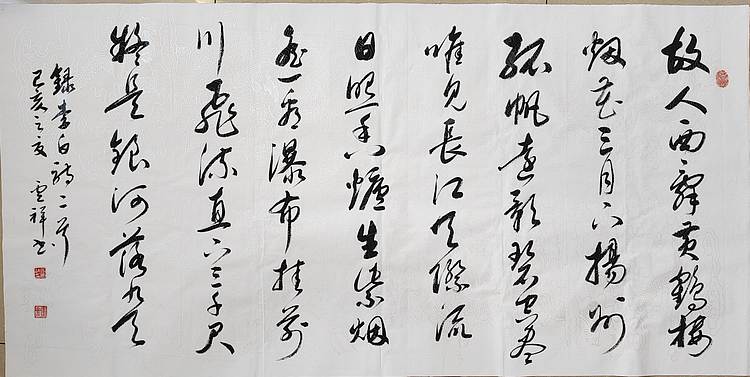 故人西辭黄鶴楼
烟花三月下揚州
孤帆遠影碧空盡
唯見長江天際流
日照香爐生紫烟
遥看瀑布挂前
川飛流直下三千尺
疑是銀河落九天
録李白詩二首
己亥之夏 雲祥书